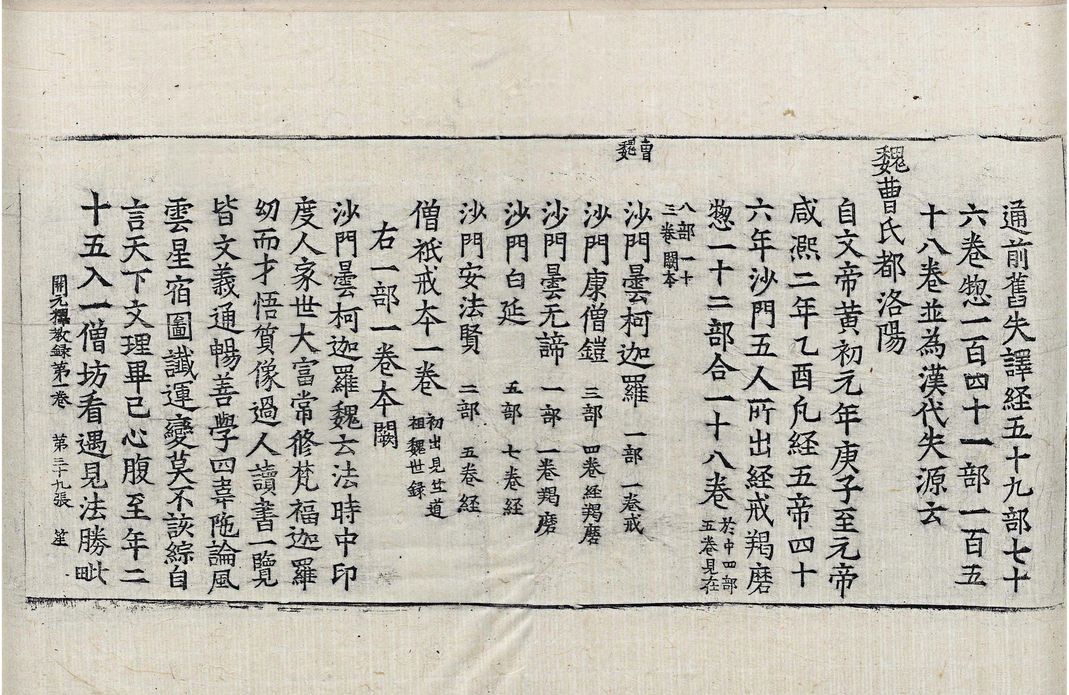 通前舊失譯経五十九部七十
六卷惣一百四十一部一百五
十八卷並為漢代失源云
魏曹氏都洛陽
自文帝黄初元年庚子至元帝
咸熙二年乙酉凡経五帝四十
六年沙門五人所出経戒羯磨
惣一十二部合一十八卷 於中四部
五卷見在
八部一十
三卷闕本
曹魏
沙門曇柯迦羅 一部 一卷戒
沙門康僧鎧 三部 四卷経羯磨
沙門曇无諦 一部 一卷羯磨
沙門白延 五部 七卷経
沙門安法賢 二部 五卷経
僧祇戒夲一卷 初出見竺道
祖魏世録
右一部一卷夲闕
沙門曇柯迦羅魏云法時中印
度人家世大富常修梵福迦羅
幼而才悟質像過人讀書一覽
皆文義通暢善學四韋陁論風
雲星宿圖讖運變莫不該綜自
言天下文理畢己心腹至年二
十五入一僧坊看遇見法勝毗
開元釋教録第一卷 第三十九張 笙